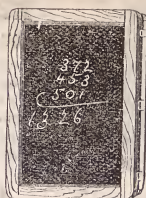 372
453
501
1326